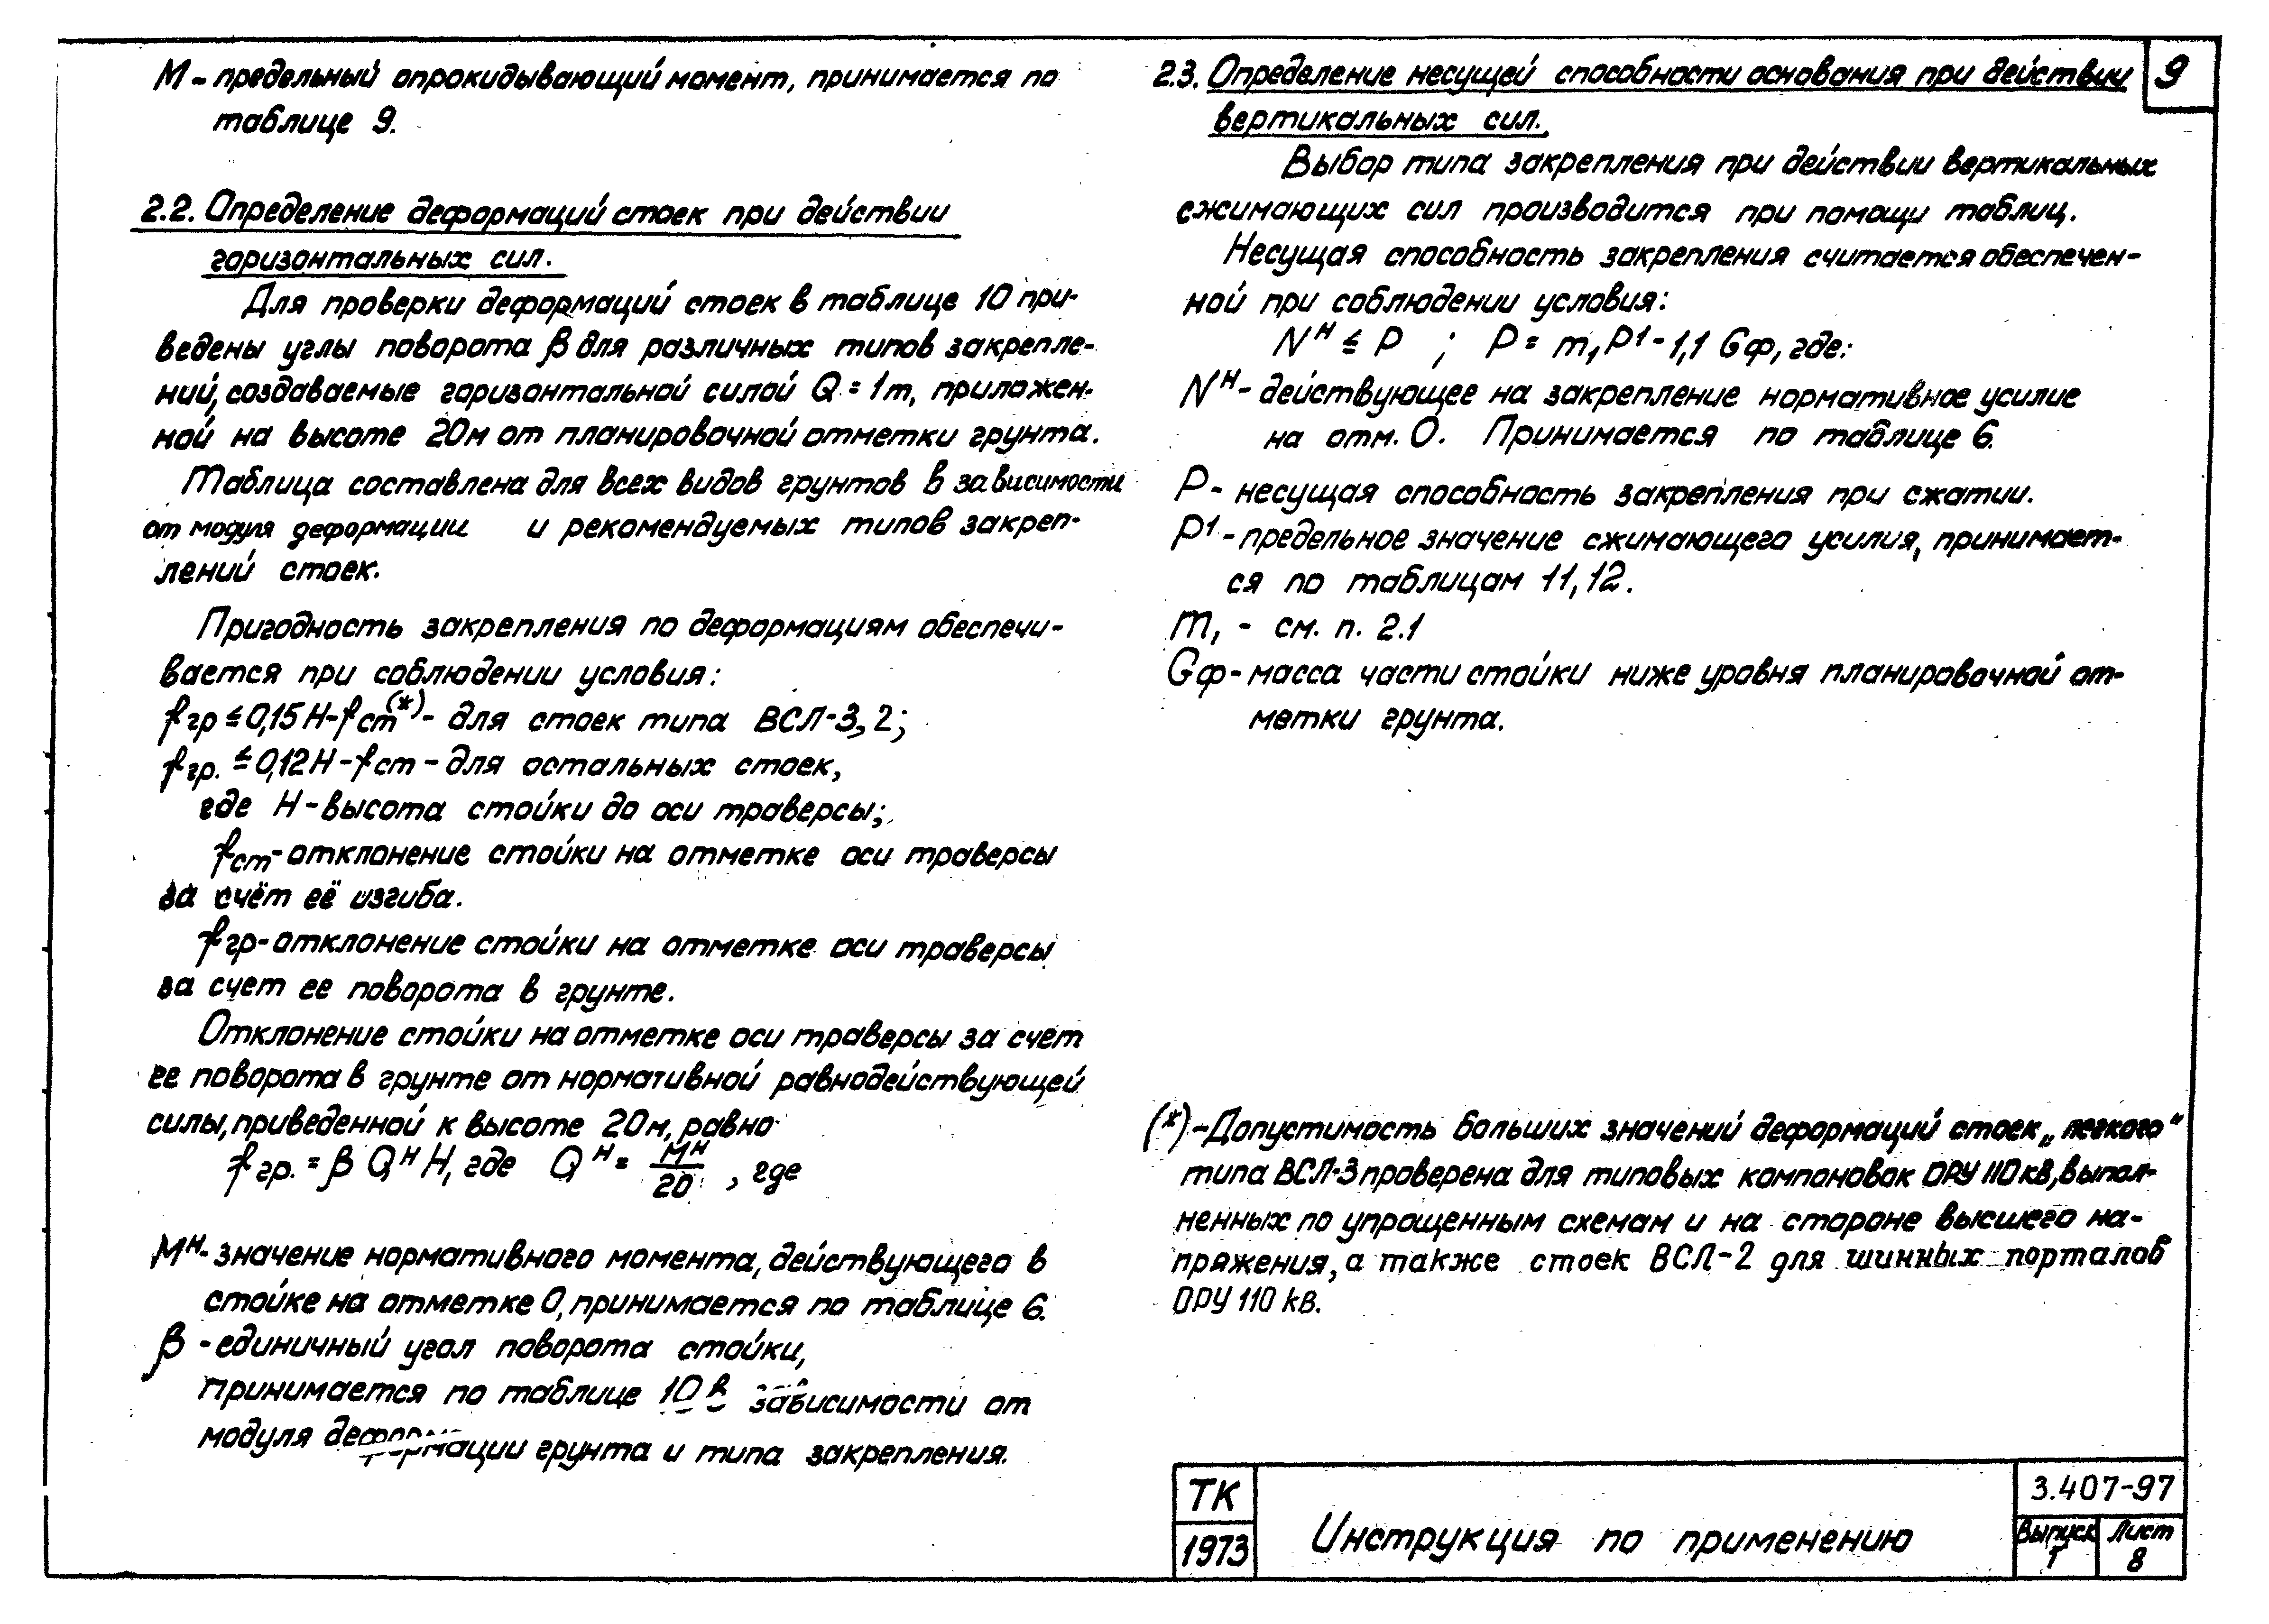 М - предельный опрокидывающий момент, принимается по
таблице 9.
2.2. Определение деформаций стоек при действии
горизонтальных сил.
Для проверки деформаций стоек в таблице 10 при-
ведены углы поворота β для различных типов закрепле-
ний, создаваемые горизонтальной силой Q = 1т, приложен-
ной на высоте 20м от планировочной отметки грунта.
Таблица составлена для всех видов грунтов в зависимости
от модуля деформации и рекомендуемых типов закреп-
лений стоек.
Пригодность закрепления по деформациям обеспечи-
вается при соблюдении условия:
fгр ≤ 0,15 Н - fст (*) - для стоек типа ВСЛ-3, 2;
fгр. ≤ 0,12 Н - fст - для остальных стоек,
где Н - высота стойки до оси траверсы;
fст - отклонение стойки на отметке оси траверсы
за счёт её изгиба.
fгр - отклонение стойки на отметке оси траверсы
за счет ее поворота в грунте.
Отклонение стойки на отметке оси траверсы за счет
ее поворота в грунте от нормативной равнодействующей
силы, приведенной к высоте 20м, равно
fгр. = β Qᴴ Н, где Qᴴ = Мᴴ/20 , где
Мᴴ - значение нормативного момента, действующего в
стойке на отметке 0, принимается по таблице 6.
β - единичный угол поворота стойки,
принимается по таблице 10 в зависимости от
модуля деформации грунта и типа закрепления.
9
2.3. Определение несущей способности основания при действии
вертикальных сил.
Выбор типа закрепления при действии вертикальных
сжимающих сил производится при помощи таблиц.
Несущая способность закрепления считается обеспечен-
ной при соблюдении условия:
Nᴴ ≤ Р ; Р = m₁ Р¹ - 1,1 Gф, где:
Nᴴ - действующее на закрепление нормативное усилие
на отм. 0. Принимается по таблице 6.
Р - несущая способность закрепления при сжатии.
Р¹ - предельное значение сжимающего усилия, принимает-
ся по таблицам 11, 12.
m₁ - см. п. 2.1
Gф - масса части стойки ниже уровня планировочной от-
метки грунта.
(*) - Допустимость больших значений деформаций стоек „легкого"
типа ВСЛ-3 проверена для типовых компоновок ОРУ 110 кв, выпол-
ненных по упрощенным схемам и на стороне высшего на-
пряжения, а также стоек ВСЛ-2 для шинных порталов
ОРУ 110 кв.
ТК
1973
Инструкция по применению
3.407-97
Выпуск Лист
I 8